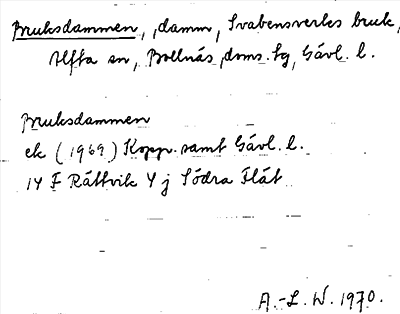 Bruksdammen, damm, Svabensverks bruk,
Alfta sn, Bollnäs doms. sg, Gävl. l.
Bruksdammen
ek (1969) Kopp. samt Gävl. l.
14 F Rättvik 4 j Södra Flät
A.-L. W. 1970.